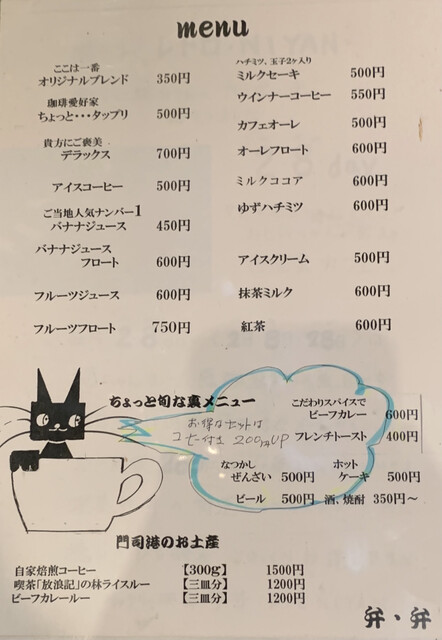 menu
ここは一番
オリジナルブレンド 350円
珈琲愛好家
ちょっと・・・タップリ 500円
貴方にご褒美
デラックス 700円
アイスコーヒー 500円
ご当地人気ナンバー1
バナナジュース 450円
バナナジュース
フロート 600円
フルーツジュース 600円
フルーツフロート 750円
ハチミツ、玉子2ヶ入り
ミルクセーキ 500円
ウインナーコーヒー 550円
カフェオーレ 500円
オーレフロート 600円
ミルクココア 600円
ゆずハチミツ 600円
アイスクリーム 500円
抹茶ミルク 600円
紅茶 600円
ちょっと旬な裏メニュー
お得なセットは
コーヒー付き 200円UP
こだわりスパイスで
ビーフカレー 600円
フレンチトースト 400円
なつかし
ぜんざい 500円
ホット
ケーキ 500円
ビール 500円 酒、焼酎 350円～
門司港のお土産
自家焙煎コーヒー 【300g】 1500円
喫茶「放浪記」の林ライスルー 【三皿分】 1200円
ビーフカレールー 【三皿分】 1200円
弁・弁